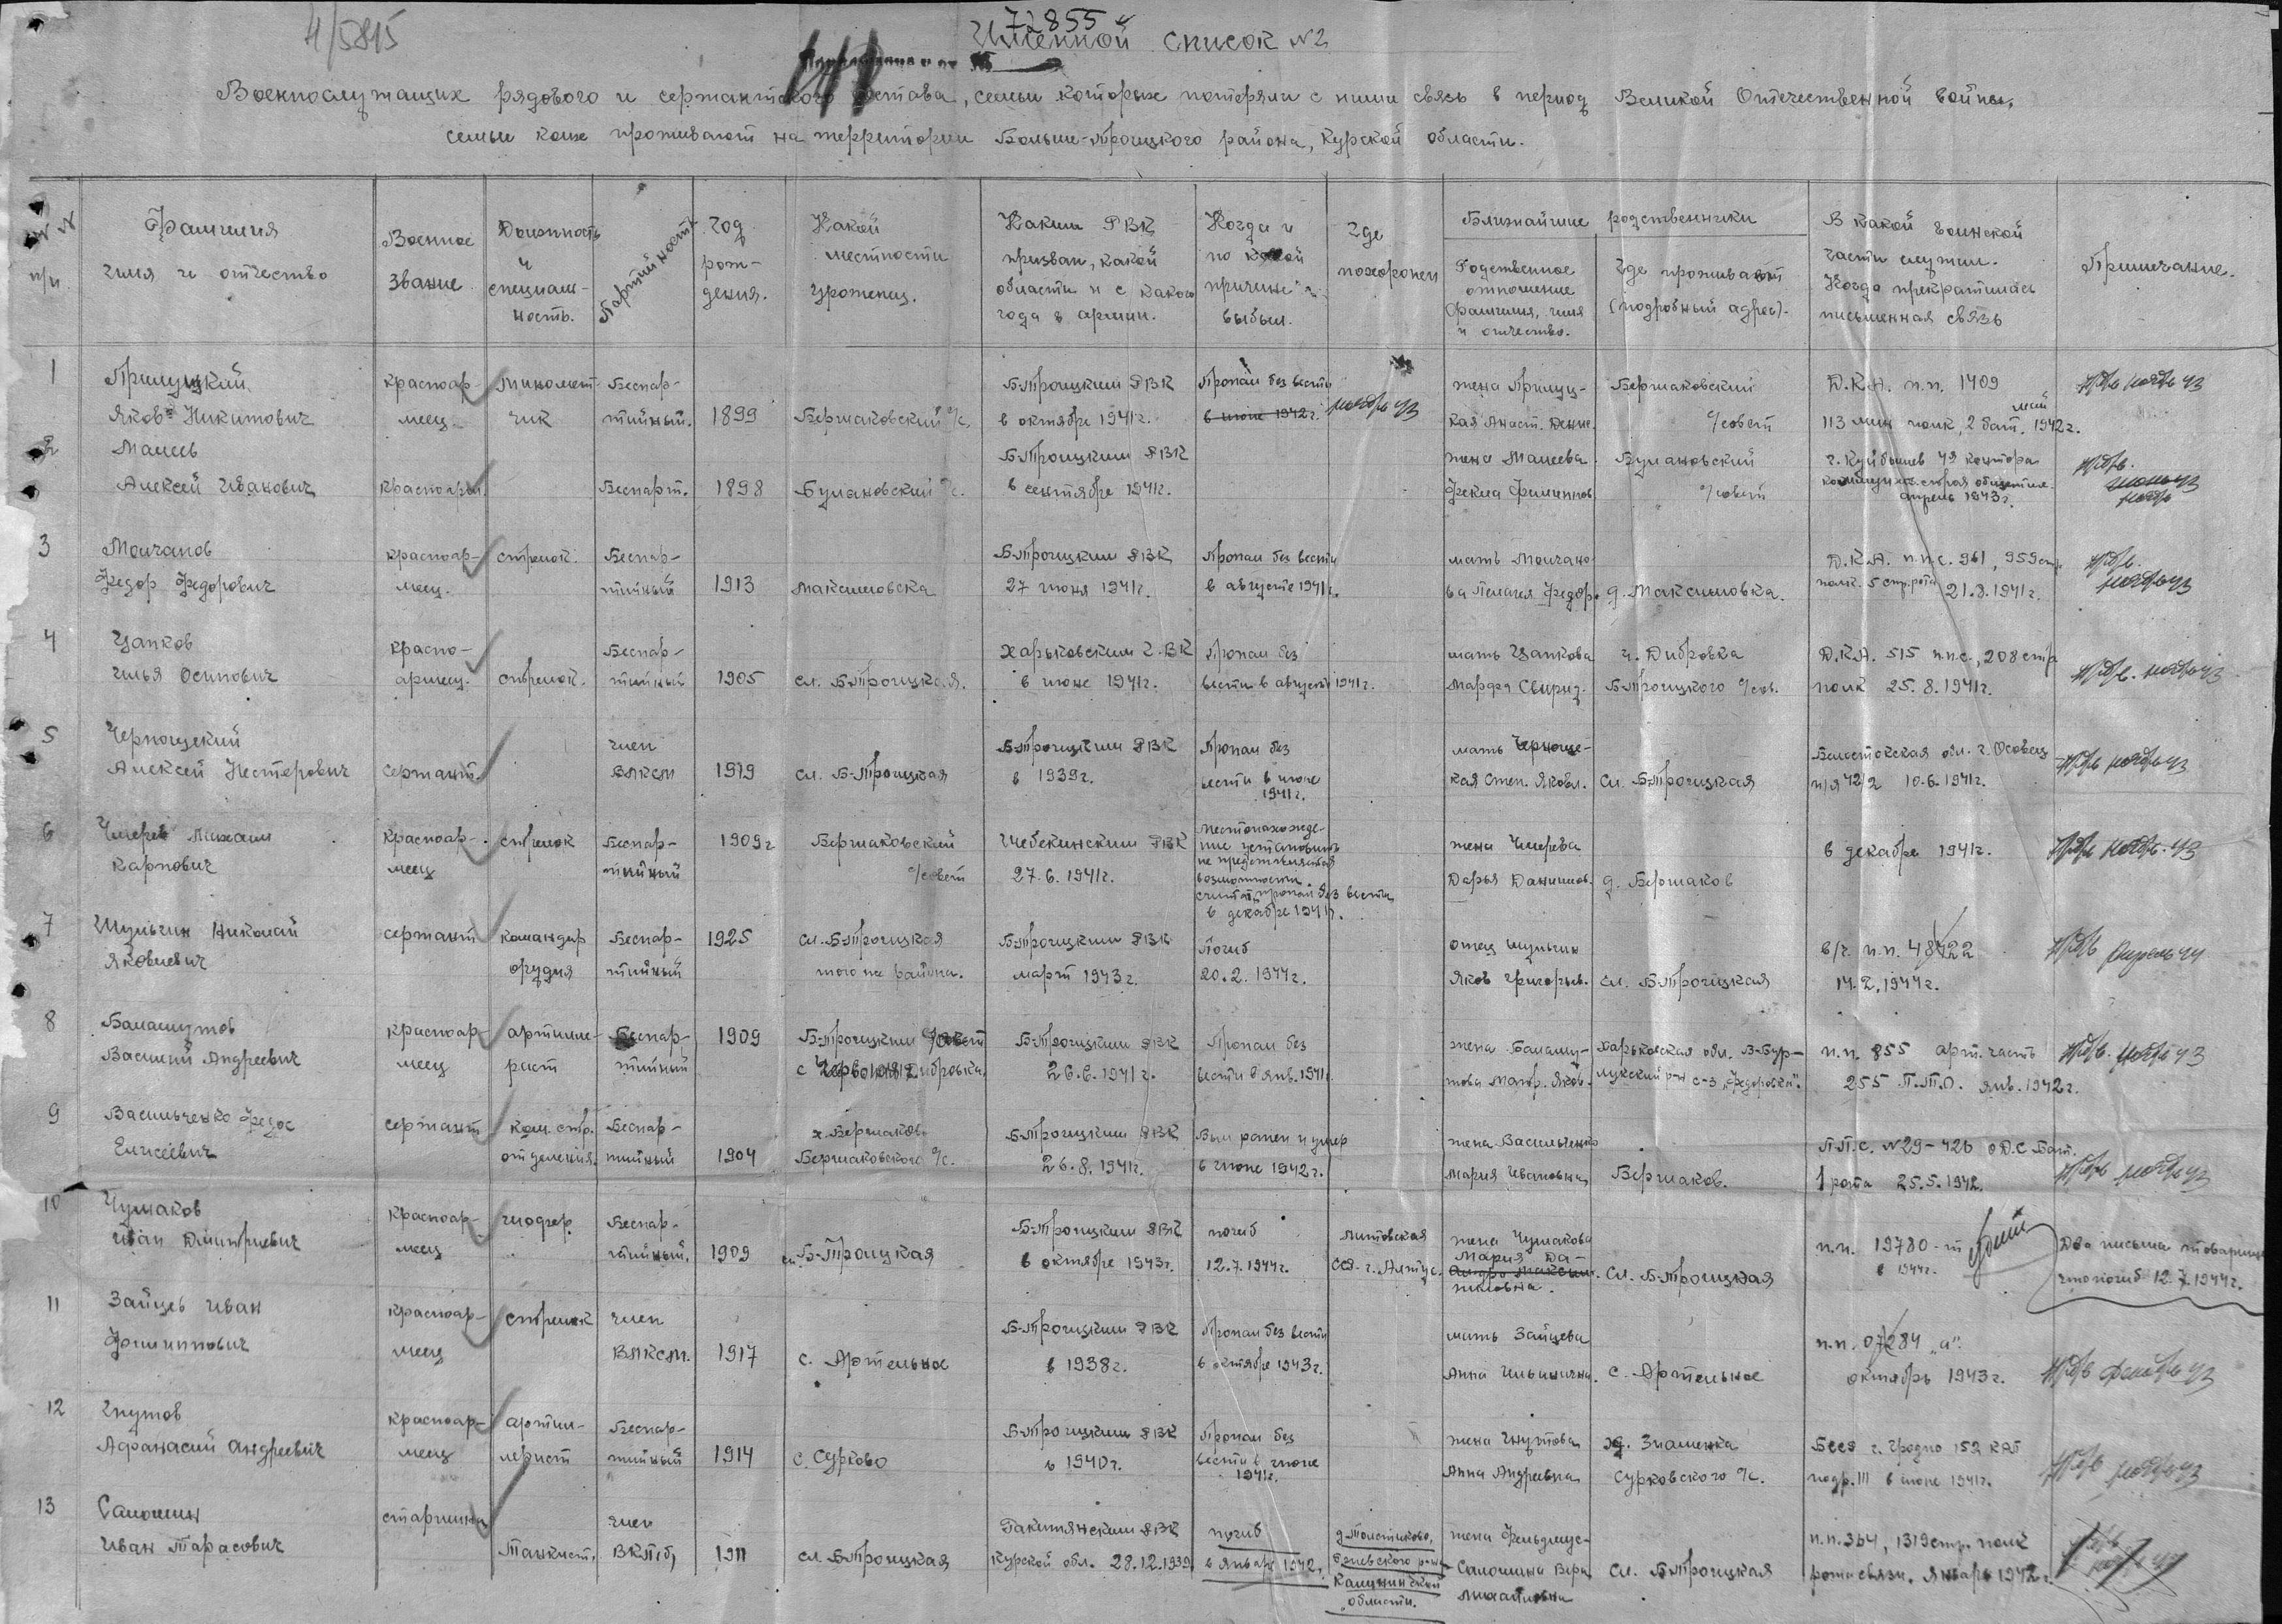 Н/5815
72855
Именной список №2
Военнослужащих рядового и сержантского состава, семьи которых потеряли с ними связь в период Великой Отечественной войны,
семьи коих проживают на территории Больше-Троицкого района, Курской области.
№ № п/п
Фамилия имя и отчество
Военное звание
Должность и специальность.
Партийность
Год рождения.
Какой местности уроженец.
Каким РВК призван, какой области и с какого года в армии.
Когда и по какой причине выбыл.
Где похоронен
Ближайшие родственники
Родственное отношение фамилия, имя и отчество.
Где проживают (подробный адрес).
В какой воинской части служил. Когда прекратилась письменная связь
Примечание.
1
Прилуцкий Яков Никитович
красноармеец
минометчик
Беспартийный.
1899
Бершаковский с/с.
Б-Троицким РВК в октябре 1941г.
Пропал без вести в июне 1942г.
ноябрь 43
жена Прилуцкая Анаст. Дение.
Бершаковский с/совет
Д.К.А. п.п. 1409
113 мин полк, 2 бат. май 1942г.
ноябрь 43
2
Манеев
Алексей Иванович
красноарм.
Беспарт.
1898
Булановский с/с.
Б-Троицким РВК
в сентябре 1941г.
жена Манеева
Фекла Филиппов
Булановский с/совет
г. Куйбышев 49 контора
апрель 1943г.
3
Молчанов
Федор Федорович
красноармеец.
стрелок.
Беспартийный
1913
Максимовска
Б-Троицким РВК
27 июня 1941г.
Пропал без вести
в августе 1941г.
мать Молчанова Пелагея Федор.
д. Максимовка.
Д.К.А. п.п.с. 961, 959 стр.
полк. 5 стр. рота 21.8.1941г.
ноябрь 43
4
Цапков
Илья Осипович
красноармеец.
стрелок.
Беспартийный
1905
сл. Б-Троицкая.
Харьковским Г.ВК
в июне 1941г.
Пропал без
вести в августе 1941г.
мать Цапкова
Марфа Свирид.
ч. Дибровка
Б-Троицкого с/сов.
Д.К.А. 515 п.п.с., 208 стр
полк 25.8.1941г.
ноябрь 43
5
Черноуцкий
Алексей Нестерович
сержант.
член ВЛКСМ
1919
сл. Б-Троицкая
Б-Троицким РВК
в 1939г.
Пропал без
вести в июне
1941г.
мать
Степ. Яковл.
сл. Б-Троицкая
Белостокская обл. г. Осовец
п/я 42/2 10.6.1941г.
ноябрь 43
6
Чмерев Михаил
Карпович
красноармеец
стрелок
Беспартийный
1909г
Бершаковский
с/совет
Шебекинским РВК
27.6.1941г.
Местонахождение установить
не представляется
возможности
считать пропал без вести
в декабре 1941г.
жена Чмерева
Дарья Данилов.
д. Бершаков
в декабре 1941г.
ноябрь 43
7
Шульгин Николай
Яковлевич
сержант
командир орудия
Беспартийный
1925
сл. Б-Троицкая
того же района.
Б-Троицким РВК
март 1943г.
Погиб
20.2.1944г.
отец Шульгин
Яков Григорьев.
сл. Б-Троицкая
в/ч. п.п. 48422
14.2.1944г.
апрель 44
8
Балашутов
Василий Андреевич
красноармеец
артиллерист
Беспартийный
1909
Б-Троицкий с/совет
с Червона Дибровка
Б-Троицким РВК
26.6.1941г.
Пропал без
вести в янв. 1941г.
жена Балашутова Матр. Яков.
Харьковская обл. В-Бурлукский р-н с-з "Федоровка".
п.п. 855 арт. часть
255 П.П.О. янв. 1942г.
ноябрь 43
9
Васильченко Федос
Елисеевич
сержант
ком. стр.
отделения.
Беспартийный
1904
х. Бершаково
Бершаковского с/с.
Б-Троицким РВК
26.8.1941г.
Был ранен и умер
в июне 1942г.
жена Васильченко
Мария Ивановна
Бершаков.
П.П.С. №29-426 О.Д.С. Бат.
1 рота 25.5.1942.
ноябрь 43
10
Чумаков
Иван Дмитриевич
красноармеец
Беспартийный.
1909
сл. Б-Троицкая
Б-Троицким РВК
в октябре 1943г.
погиб
12.7.1944г.
Литовская
ССР г. Алитус.
жена Чумакова
Мария Даниловна.
сл. Б-Троицкая
п.п. 19780-т
в 1944г.
Два письма товарища
что погиб 12.7.1944г.
11
Зайцев Иван
Филиппович
красноармеец
стрелок
член ВЛКСМ.
1917
с. Артельное
Б-Троицким РВК
в 1938г.
Пропал без вести
в октябре 1943г.
мать Зайцева
Анна Ильинична.
с. Артельное
п.п. 07284 "а".
октябрь 1943г.
декабрь 43
12
Гнутов
Афанасий Андреевич
красноармеец
артиллерист
Беспартийный
1914
с. Сурково
Б-Троицким РВК
в 1940г.
Пропал без
вести в июне
1941г.
жена Гнутова
Анна Андреевна
х. Знаменка
Сурковского с/с.
Бсср г. Гродно 152 кап
подр. III в июне 1941г.
ноябрь 43
13
Саломин
Иван Тарасович
старшина
Танкист.
член ВКП(б)
1911
сл. Б-Троицкая
Ракитянским РВК
Курской обл. 28.12.1939
погиб
в январе 1942.
д. Толстиково,
Калининской
области.
жена
Саломина Вера
Михайловна
сл. Б-Троицкая
п.п. 364, 1319 стр. полк
рота связи. Январь 1942г.